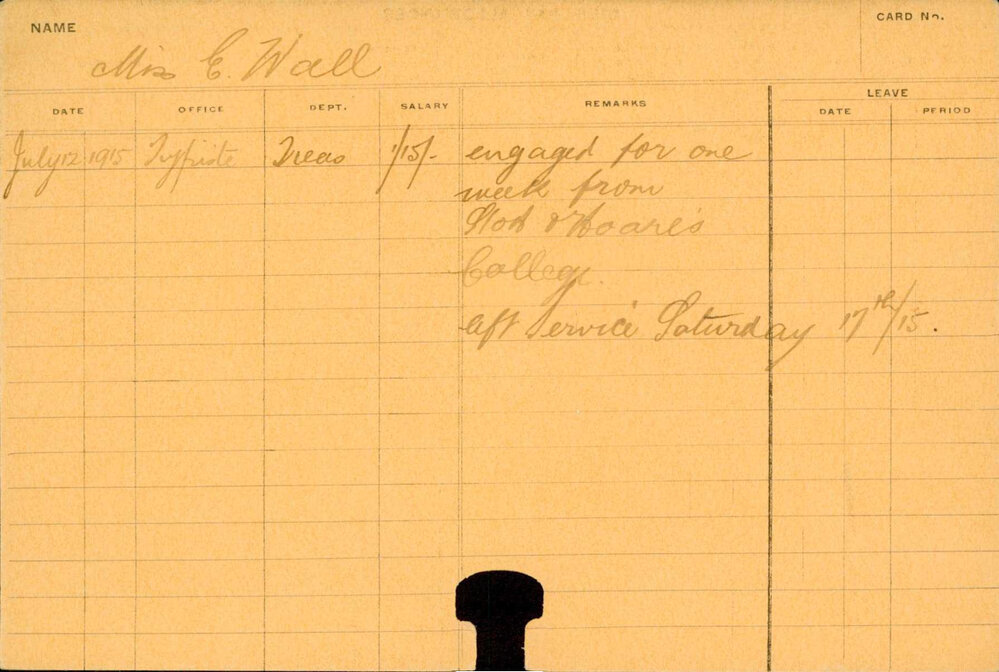 NAME
CARD No.
Miss E. Wall
DATE OFFICE DEPT. SALARY REMARKS LEAVE
DATE PERIOD
July 12 1915 Typiste Treas 1/15/- engaged for one
week from
Stott & Hoare's
College.
left service Saturday 17th/15.